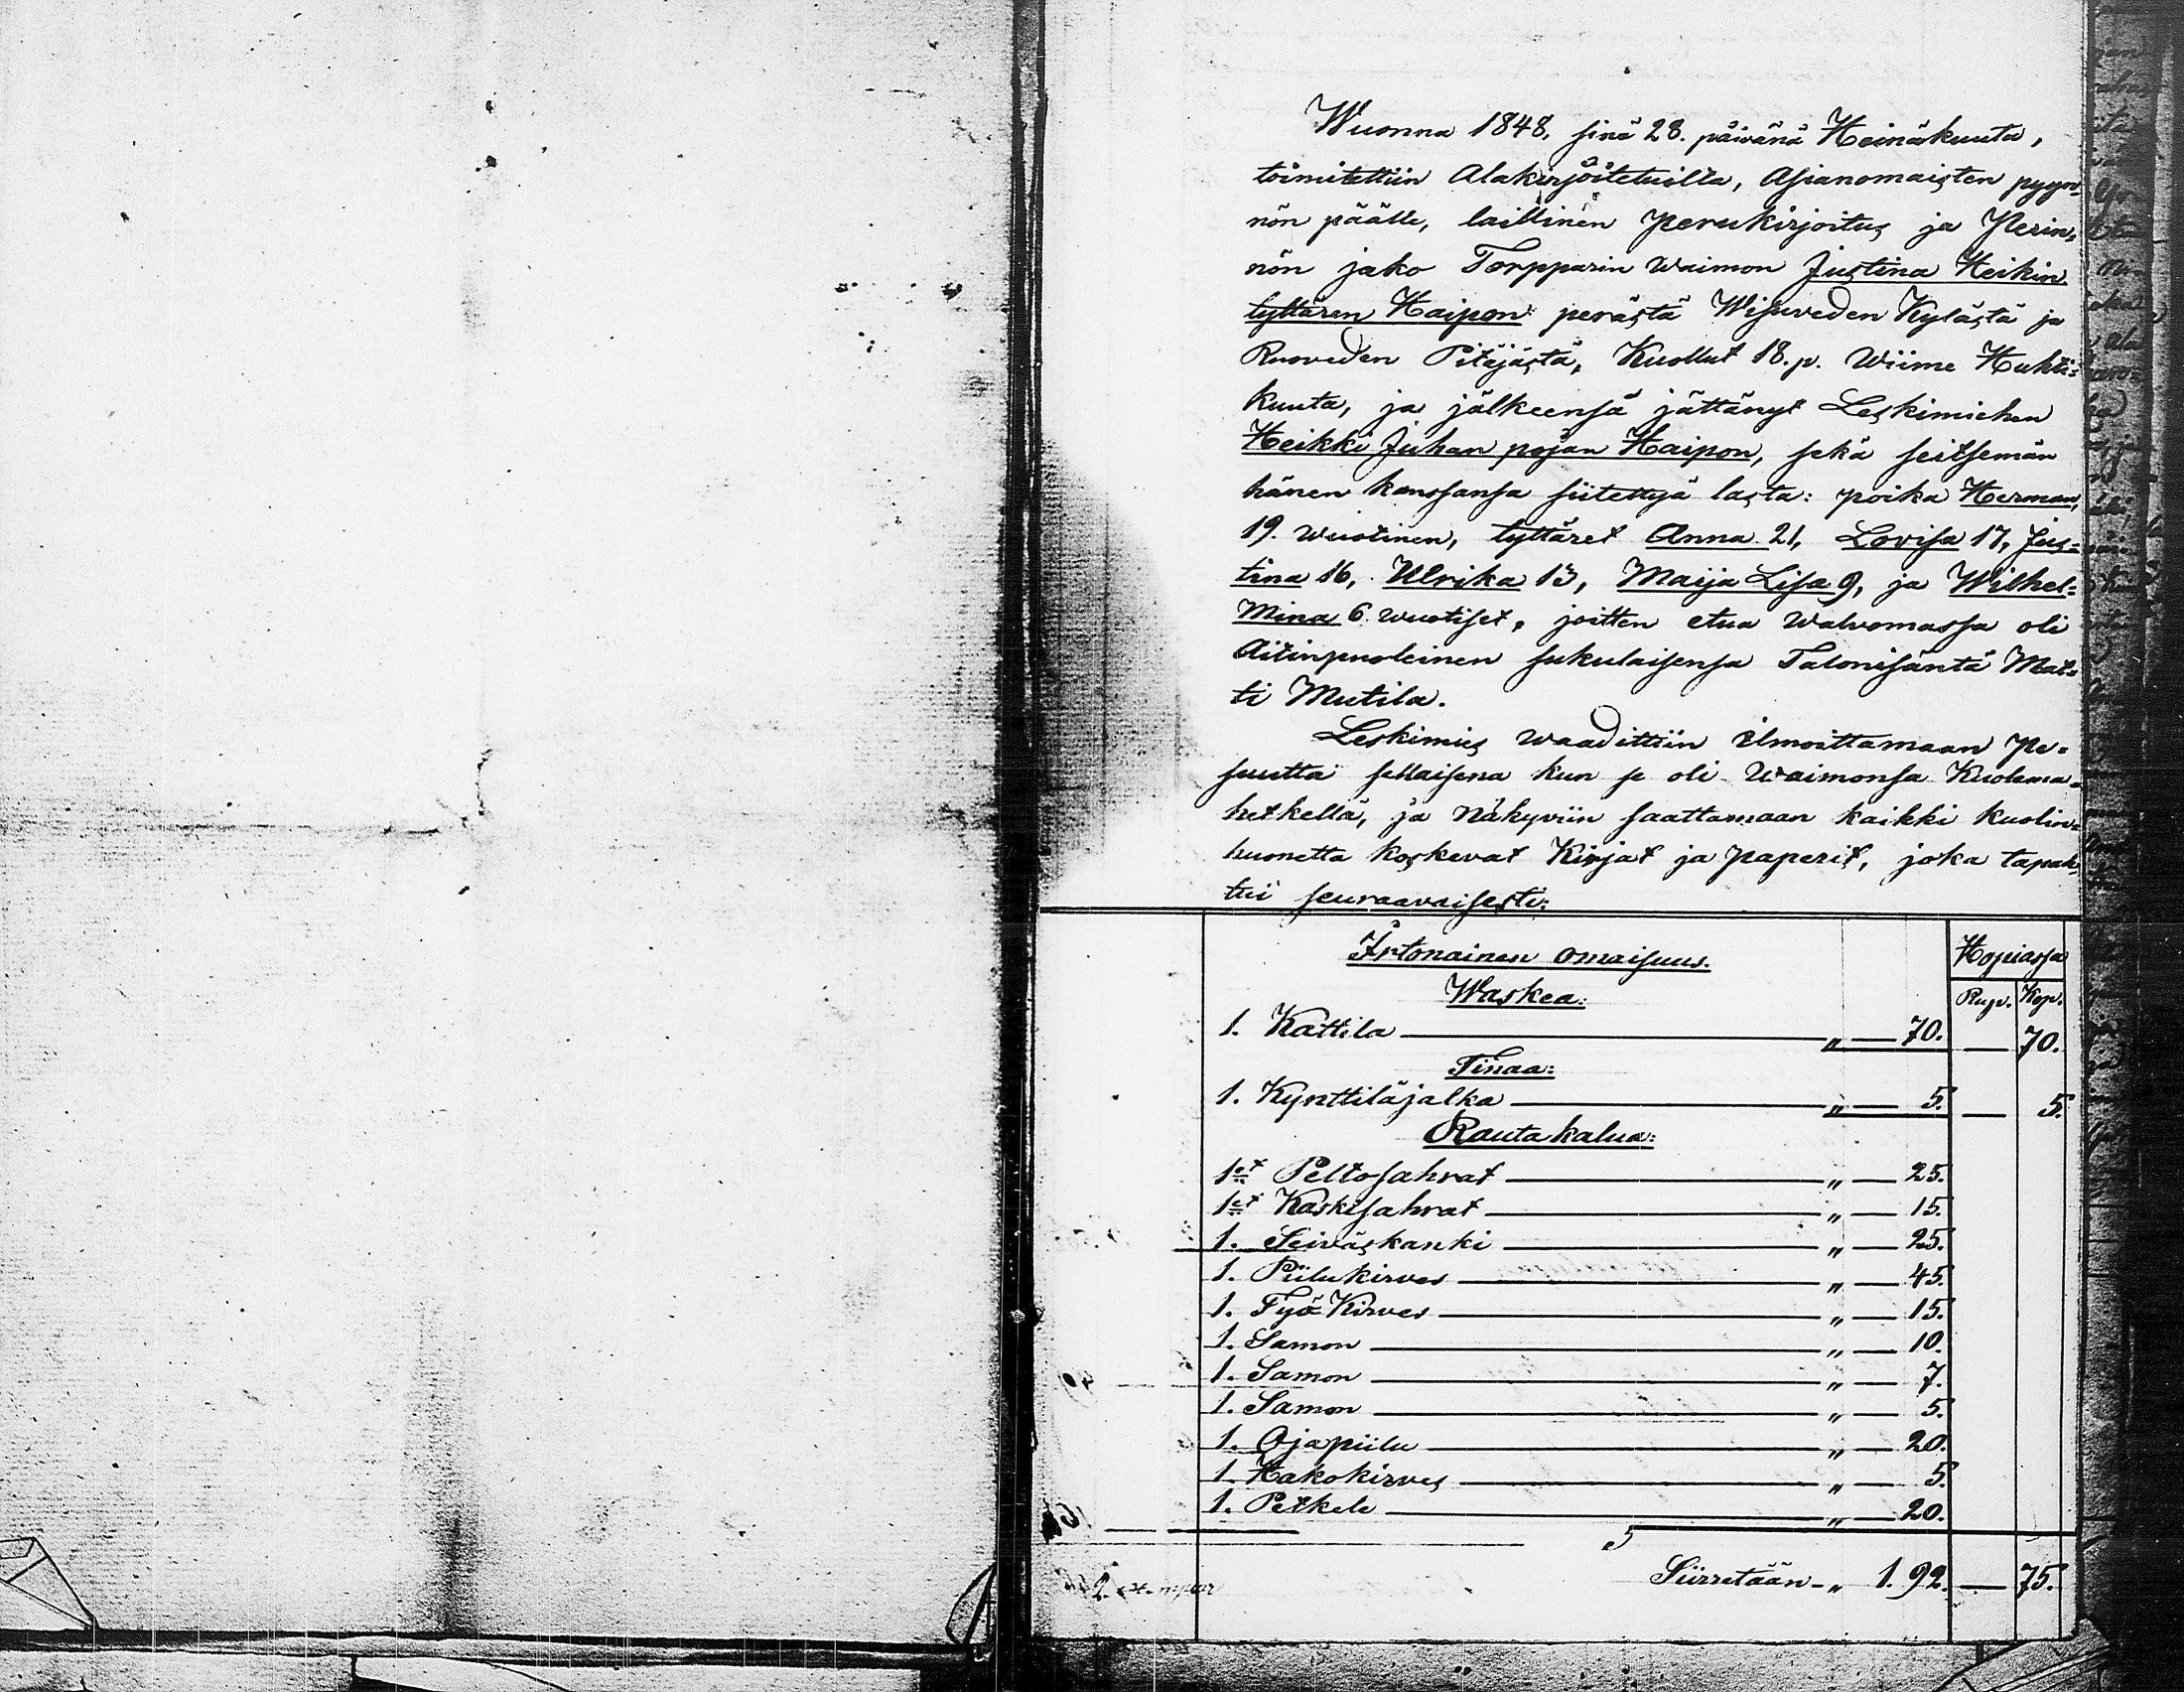 Wuonna 1848, sinä 28. päivänä Heinäkuuta,
toimitettiin Alakirjoitetuilta, Asianomaisten pyyn-
nön päälle, laillinen Perukirjoitus ja Perin-
nön jako Torpparin Waimon Justina Heikin
tyttären Haipon perästä Wisuveden Kylästä ja
Ruoveden Pitäjästä, Kuollut 18. p. Wiime Huhti-
kuuta, ja jälkeensä jättänyt Leskimiehen
Heikki Juhan pojan Haipon, sekä seitsemän
hänen kanssansa siitettyä lasta: poika Herman,
19. wuotinen, tyttäret Anna 21, Lovisa 17, Jus-
tina 16, Ulrika 13, Maija Lisa 9, ja Wilhel-
Mina 6 wuotiset, joitten etua Walvomassa oli
Äitinpuoleinen sukulaisensa Talonisäntä Mat-
ti Mutila.
Leskimies waadittiin ilmoittamaan Pe-
suutta sellaisena kun se oli Waimonsa Kuolema-
hetkellä, ja Näkyviin saattamaan kaikki kuolin-
huonetta koskevat Kirjat ja paperit, joka tapah-
tui seuraavaisesti:
Irtonainen omaisuus. Hopiassa
Waskea: Rup. Kop.
1. Kattila — " — 70. — 70.
Tinaa:
1. Kynttiläjalka — " — 5. — 5.
Rauta kalua:
1et Peltosahrat — " — 25.
1et Kaskisahrat — " — 15.
1. Seiväskanki — " — 25.
1. Piilukirves — " — 45.
1. Työ Kirves — " — 15.
1. Samon — " — 10.
1. Samon — " — 7.
1. Samon — " — 5.
1. Ojapiilu — " — 20.
1. Hakokirves — " — 5.
1. Petkele — " — 20.
Siirretään - " 1. 92. — 75.